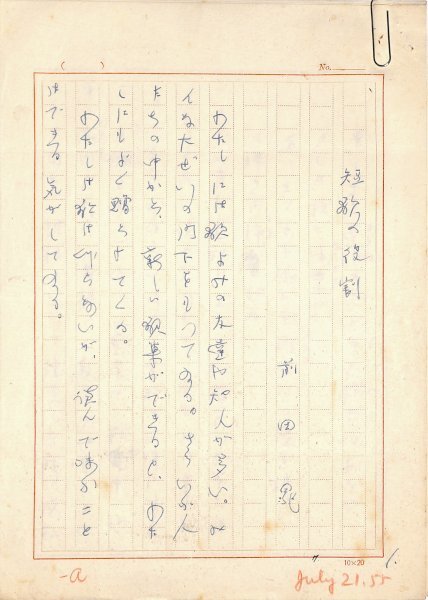 ( )
No.
短歌の役割
前田晁
わたしには歌よみの友達や知人が多い。み
んな大ぜいの門下をもつてゐる。さういふ人
たちの中から、新しい歌集ができると、わた
しにもよく贈られてくる。
わたしは歌は作らないが、読んで味ふこと
はできる気がしてゐる。
10×20
1.
-a
July 21.55